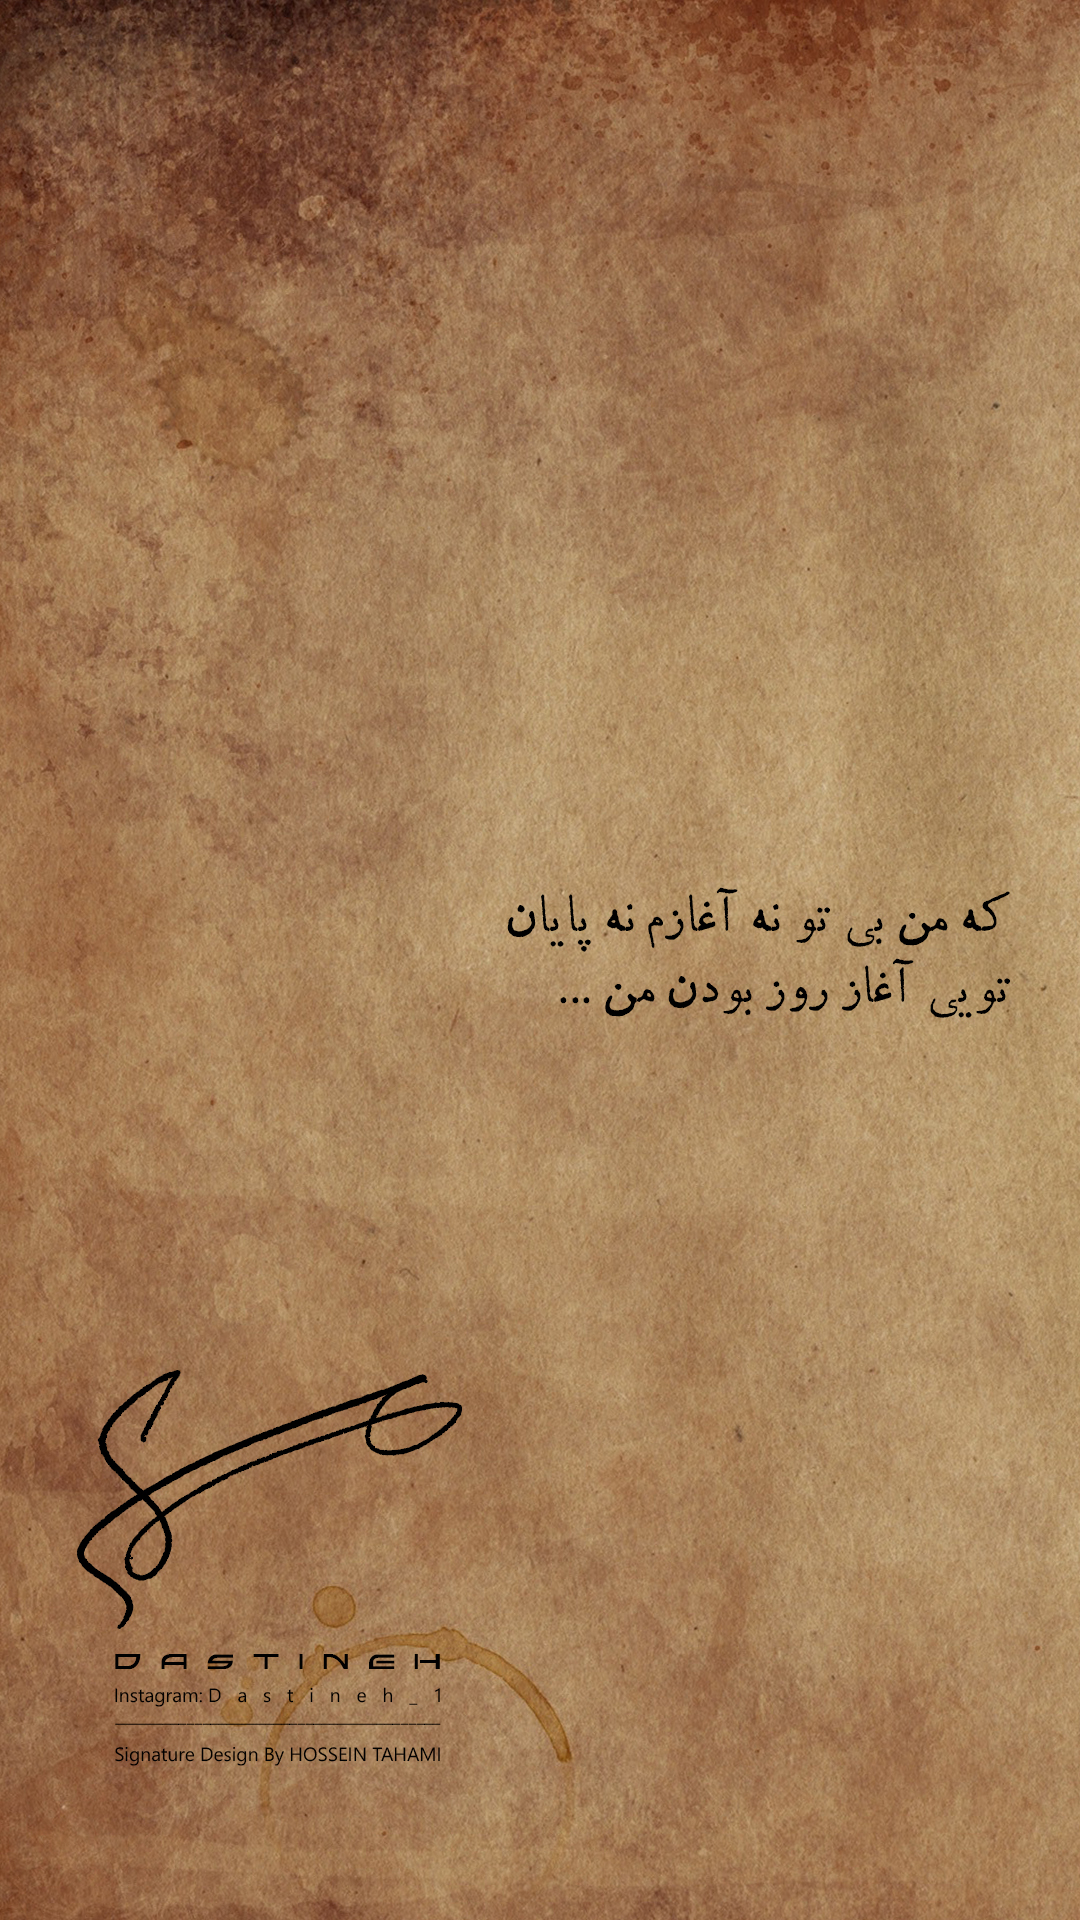 که من بی تو نه آغازم نه پایان
تویی آغاز روز بودن من ...
DASTINEH
Instagram: Dastineh_1
Signature Design By HOSSEIN TAHAMI